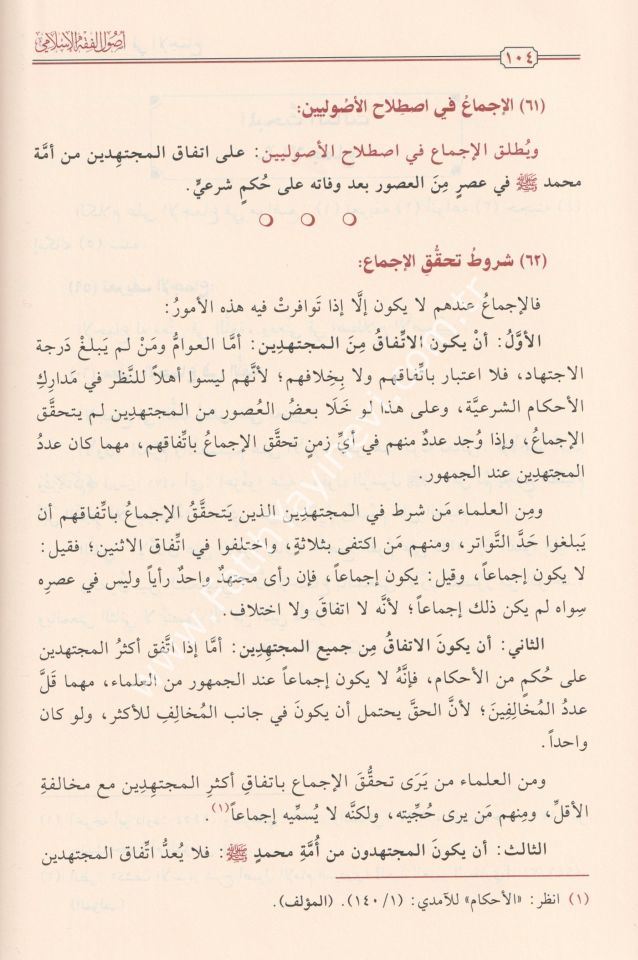 أصول الفقه الإسلامي
١٠٤
(٦١) الإجماعُ في اصطِلاح الأصُوليين:
ويُطلق الإجماع في اصطلاح الأصوليين: على اتفاق المجتهدين من أمَّة
محمد ﷺ في عصرٍ مِنَ العصور بعد وفاته على حُكمٍ شرعيٍّ.
(٦٢) شروطُ تحقُّقِ الإجماع:
فالإجماعُ عندهم لا يكون إلَّا إذا تَوافرتْ فيه هذه الأمورُ:
الأوَّلُ: أنْ يكون الاتِّفاقُ مِنَ المجتهدين: أمَّا العوامُّ ومَنْ لم يَبلغْ دَرجة
الاجتهاد، فلا اعتبار باتِّفاقهم ولا بِخِلافهم؛ لأنَّهم ليسوا أهلاً للنَّظر في مَدارِكِ
الأحكام الشرعيَّة، وعلى هذا لو خَلَا بعضُ العُصور من المجتهدين لم يتحقَّق
الإجماعُ، وإذا وُجد عددٌ منهم في أيِّ زمنٍ تحقَّق الإجماعُ باتِّفاقهم، مهما كان عددُ
المجتهدين عند الجمهور.
ومِن العلماء مَن شرط في المجتهدين الذين يَتحقَّقُ الإجماعُ باتِّفاقهم أن
يَبلغوا حَدَّ التَّواتر، ومنهم مَن اكتفى بثلاثةٍ، واختلفوا في اتِّفاق الاثنين؛ فقيل:
لا يكون إجماعاً، وقيل: يكون إجماعاً، فإن رأى مجتهدٌ واحدٌ رأياً وليس في عصرِه
سِواه لم يكن ذلك إجماعاً؛ لأنَّه لا اتفاقَ ولا اختلاف.
الثاني: أن يكونَ الاتفاقُ مِن جميعِ المجتهِدِين: أمَّا إذا اتَّفق أكثرُ المجتهدين
على حُكمٍ من الأحكام، فإنَّهُ لا يكون إجماعاً عند الجمهور من العلماء، مهما قَلَّ
عددُ المُخالِفِينَ؛ لأنَّ الحقَّ يحتمل أن يكونَ في جانب المُخالِفِ للأكثر، ولو كان
واحداً.
ومن العلماء من يَرَى تحقُّقَ الإجماع باتفاقِ أكثرِ المجتهِدِين مع مخالفةِ
الأقلِّ، ومنهم مَن يرى حُجِّيته، ولكنَّه لا يُسمِّيه إجماعاً(١).
الثالث: أن يكونَ المجتهدون من أُمَّةِ محمدٍ ﷺ: فلا يُعدُّ اتِّفاق المجتهدين
(١) انظر: «الأحكام» للآمدي: (١/ ١٤٠). (المؤلف).